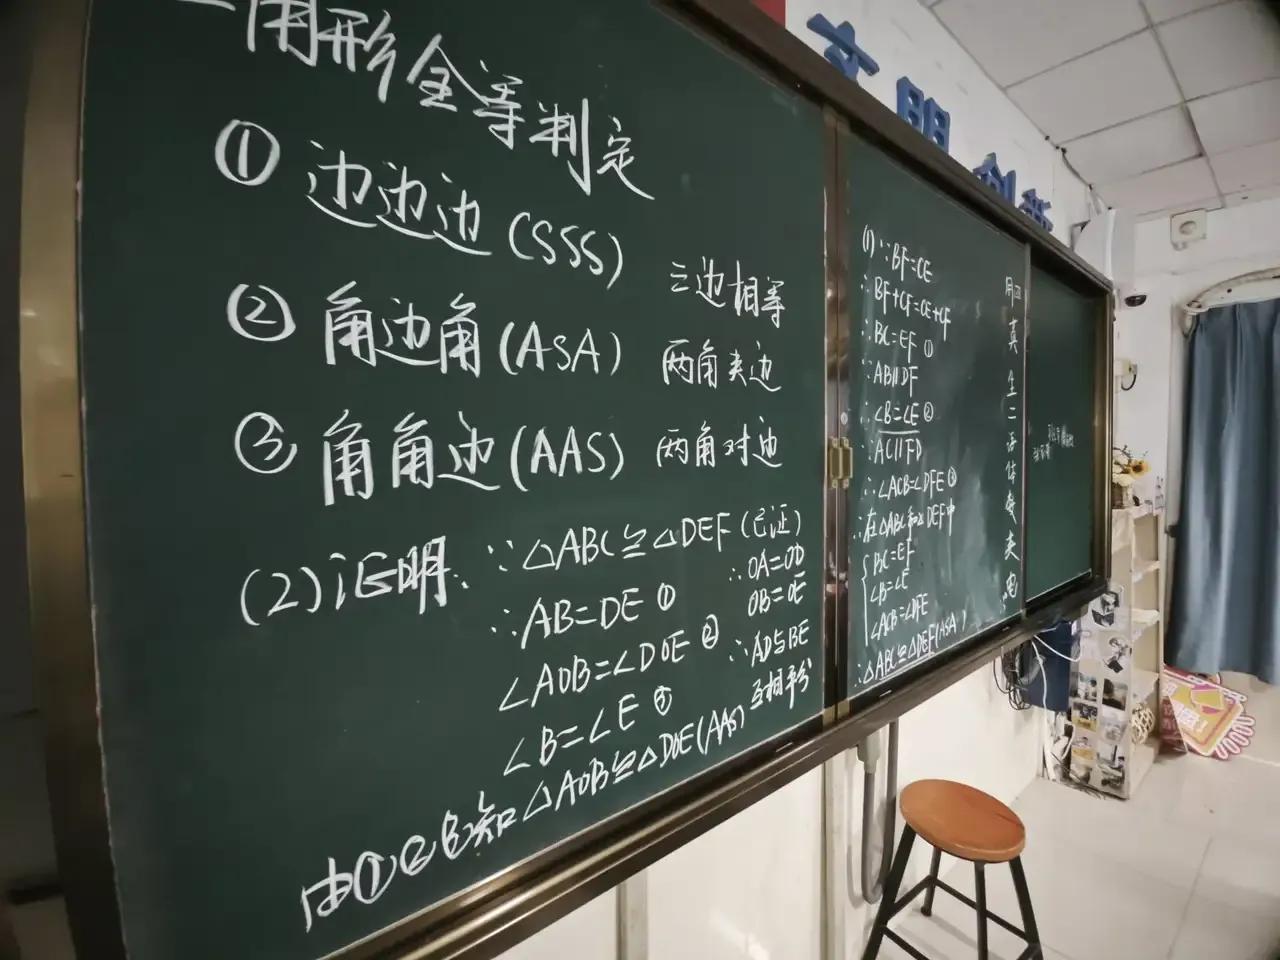 三角形全等判定
① 边边边(SSS)
三边相等
② 角边角(ASA)
两角夹边
③ 角角边(AAS)
两角对边
(2)证明: ∵△ABC≌△DEF(已证)
∴AB=DE ①
∠AOB=∠DOE ②
∠B=∠E ③
由①②③知△AOB≌△DOE(AAS)
∴OA=OD
OB=OE
∴AD与BE
互相平分
(1)∵BF=CE
∴BF+CF=CE+CF
∴BC=EF ①
∵AB∥DF
∴∠B=∠E ②
∵AC∥FD
∴∠ACB=∠DFE ③
∴在△ABC和△DEF中
BC=EF
∠B=∠E
∠ACB=∠DFE
∴△ABC≌△DEF(ASA)
文明 创新